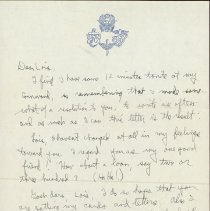 Dear Lois,
I find I have some 12 minutes to write at my
command, so remembering that I made some
sort of a resolution to you, to write as often
and as much as I can this letter is the result.
Lois, I haven't changed at all in my feelings
toward you. I regard you as my one good
friend! How about a loan, say two or
three hundred? (Ha Ha!)
Lois, I do so hope that you
are getting my cards and letters. Also I